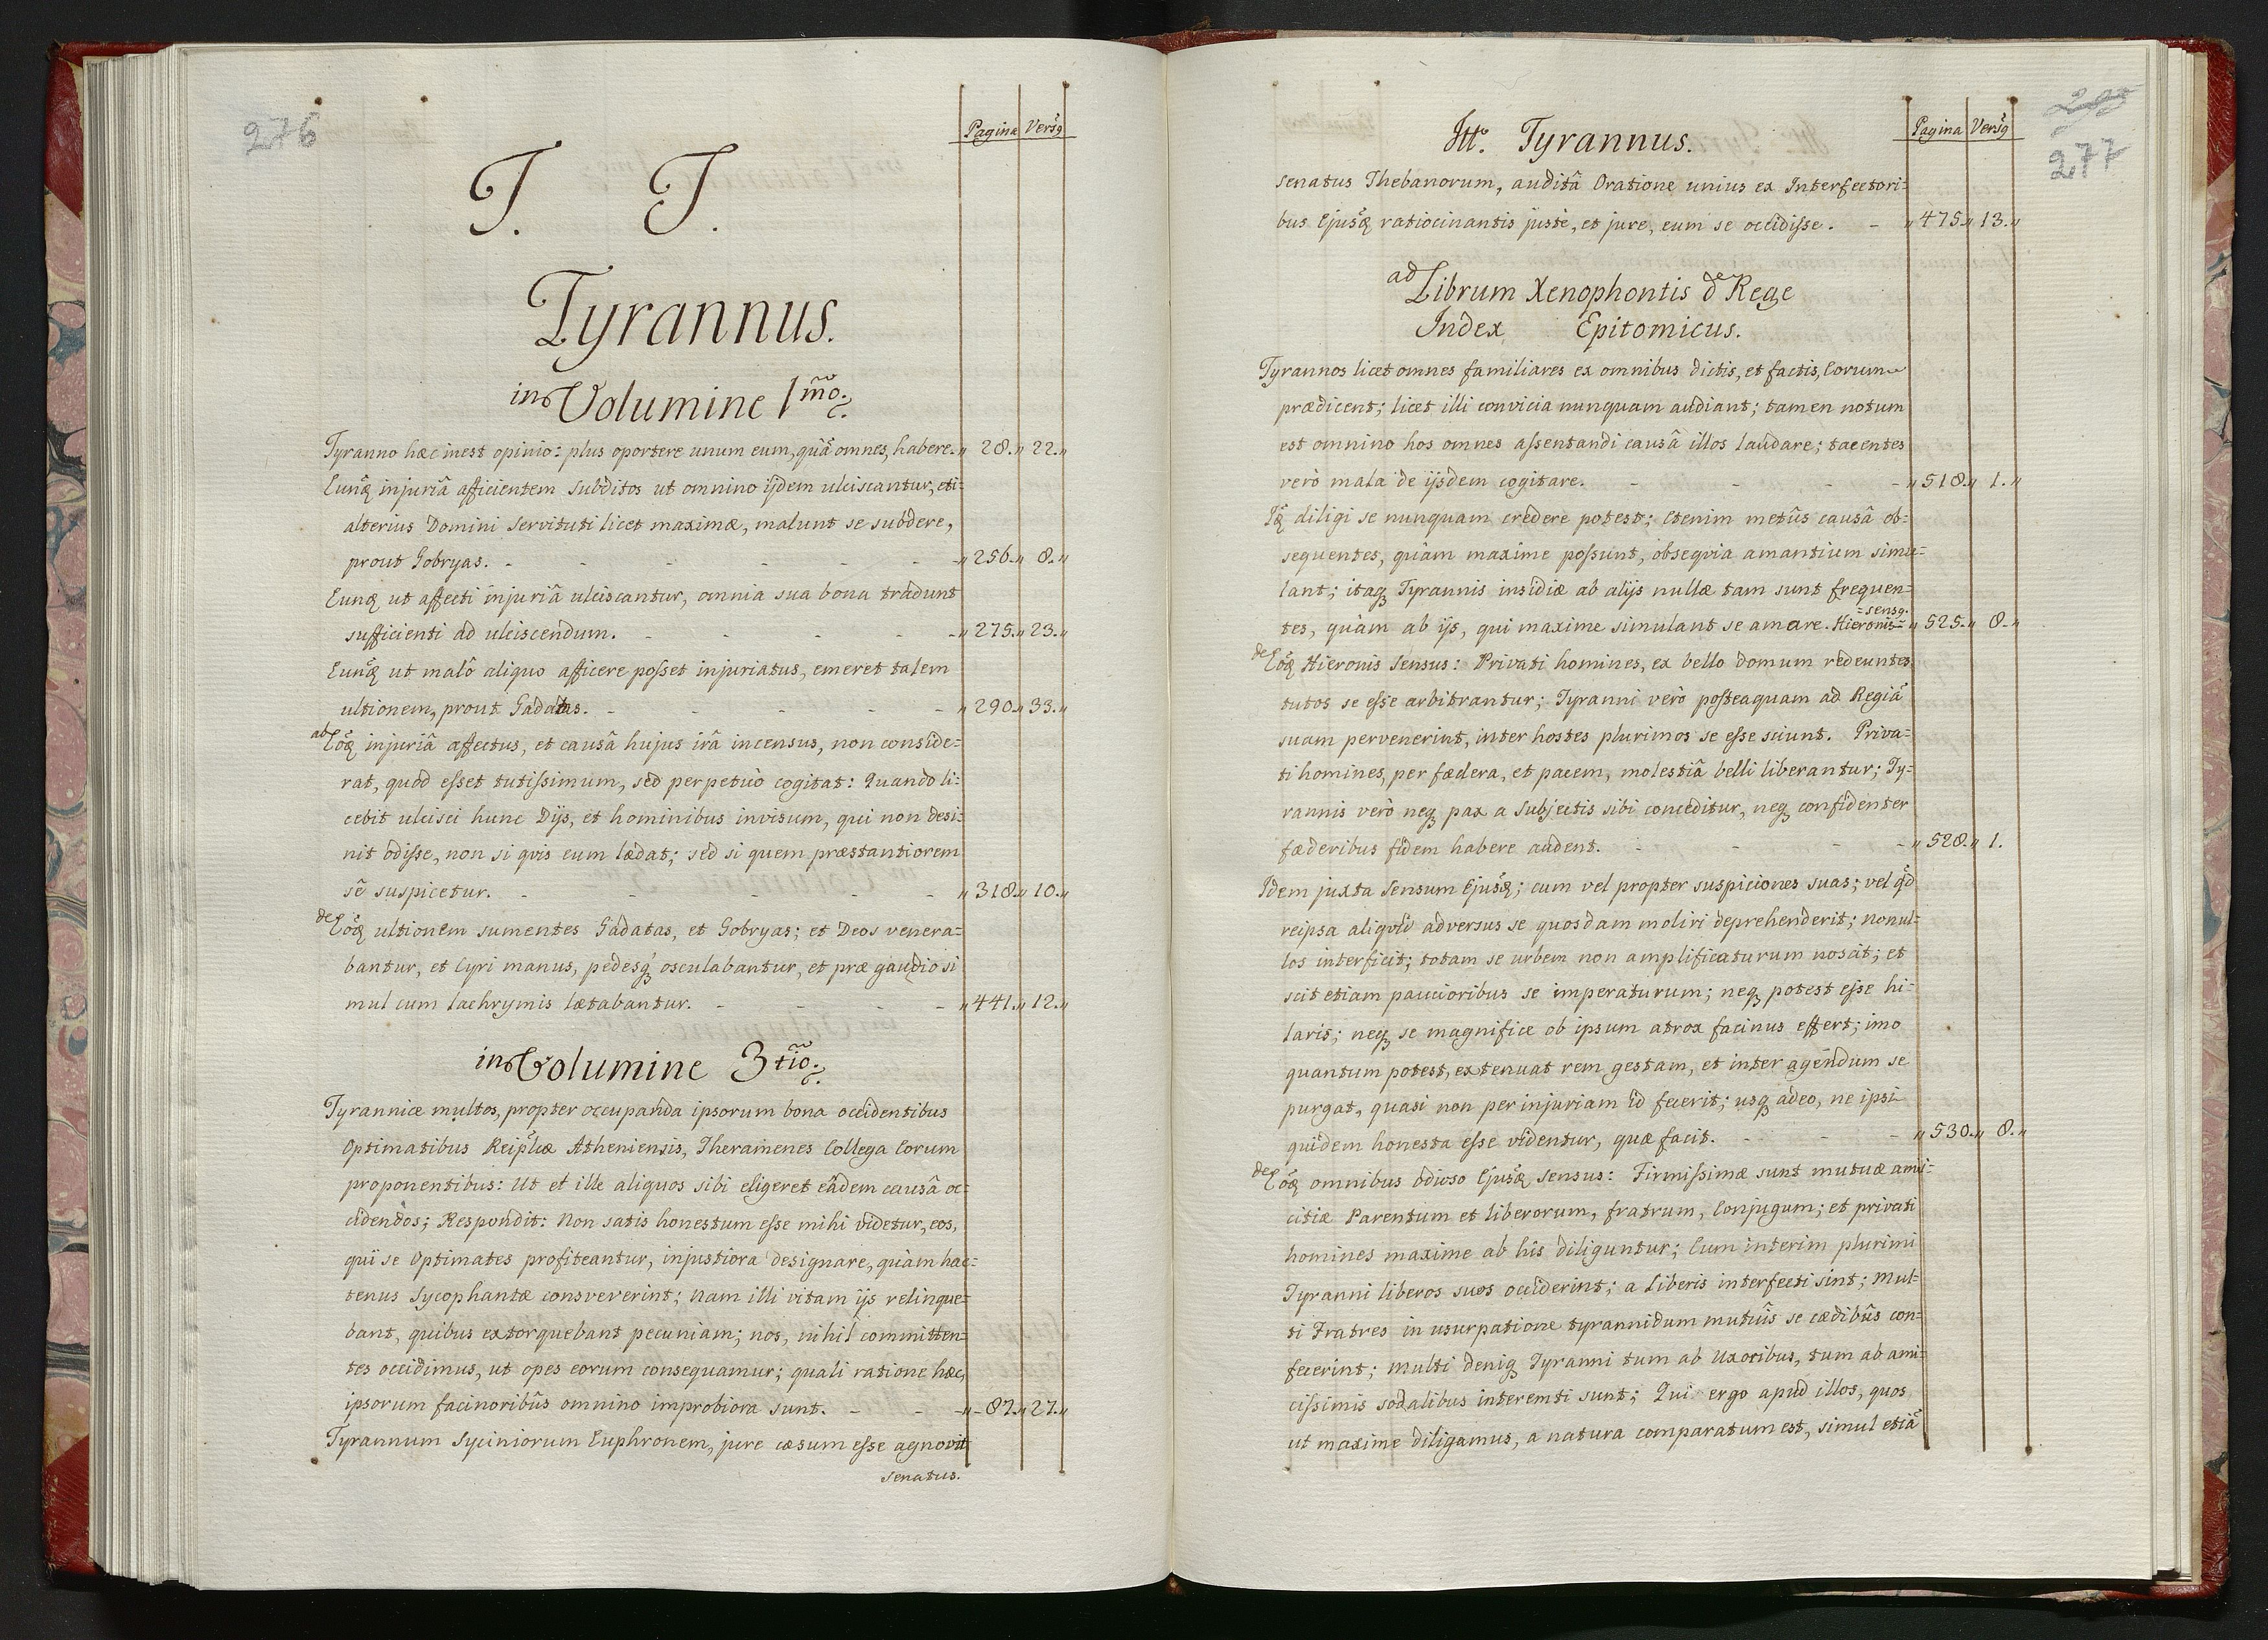 276
Pagina Versꝰ
T. T.
Tyrannus.
in Volumine 1mo.
Tyranno hæc inest opinio: plus oportere unum eum, quã omnes, habere. „ 28. „ 22. „
Eunq̃ injuriâ afficientem subditos ut omnino ijdem ulciscantur, eti-
alterius Domini servituti licet maximæ, malunt se subdere,
prout Gobryas. - - - - - - „ 256. „ 8. „
Eunq̃ ut affecti injuriâ ulciscantur, omnia sua bona tradunt
sufficienti ad ulciscendum. - - - - „ 275. „ 23. „
Eunq̃ ut malô aliquo afficere posset injuriatus, emeret talem
ultionem, prout Gadatas. - - - - - „ 290. „ 33. „
ab Eoq̃ injuriâ affectus, et causâ hujus irâ incensus, non conside=
rat, quòd esset tutissimum, sed perpetuò cogitat: Quando li-
cebit ulcisci hunc Dijs, et hominibus invisum, qui non desi-
nit odisse, non si qvis eum lædat; sed si quem præstantiorem
sê suspicetur. - - - - - „ 318. „ 10. „
de Eoq̃ ultionem sumentes Gadatas, et Gobryas; et Deos venera=
bantur, et Cyri manus, pedesq́ osculabantur, et præ gaudio si
mul cum lachrymis lætabantur. - - - - „ 441. „ 12. „
in Volumine 3tio.
Tyrannicæ multos, propter occupanda ipsorum bona occidentibus
Optimatibus Reiplicæ Atheniensis, Theramenes Collega Eorum
proponentibus: Ut et ille aliquos sibi eligeret eâdem causâ oc=
cidendos; Respondit: Non satis honestum esse mihi videtur, eos,
qui se Optimates profiteantur, injustiora designare, quàm hac=
tenus Sycophantæ consveverint; nam illi vitam ijs relinque=
bant, quibus extorquebant pecuniam; nos, nihil committen=
tes occidimus, ut opes eorum consequamur; quali ratione hæc,
ipsorum facinoribûs omnino improbiora sunt. - - - „ 87. „ 27. „
Tyrannum Syciniorum Euphronem, jure cæsum esse agnovit
senatus.
295
277
Pagina Versꝰ
Itt. Tyrannus.
senatus Thebanorum, auditâ Oratione unius ex Interfectori=
bus Ejusq̃ ratiocinantis justè, et jure, eum se occidisse. - „ 475. „ 13. „
ad Librum Xenophontis de Rege
Index Epitomicus.
Tyrannos licet omnes familiares ex omnibus dictis, et factis, Eorum
prædicent; licet illi convicia nunquam audiant; tamen notum
est omnino hos omnes assentandi causâ illos laudare; tacentes
verò mala de ijsdem cogitare. - - - - „ 518. „ 1. „
Iq̃ diligi se nunquam credere potest; Etenim metûs causâ ob=
sequentes, quàm maxime possunt, obseqvia amantium simu=
lant; itaq Tyrannis insidiæ ab alijs nullæ tam sunt frequen=
=sensq.
tes, quàm ab ijs, qui maxime simulant se amare. Hieronis= „ 525. „ 8. „
de Eoq̃ Hieronis sensus: Privati homines, ex bello domum redeuntes
tutos se esse arbitrantur; Tyranni verò posteaquam ad Regiã
suam pervenerint, inter hostes plurimos se esse sciunt. Priva=
ti homines, per fædera, et pacem, molestiâ belli liberantur; Ty=
rannis verò neq pax a subjectis sibi conceditur, neq confidenter
fæderibus fidem habere audent. - - - - „ 528. „ 1.
Idem juxta sensum Ejusq̃; cum vel propter suspiciones suas; vel q̃d
reipsa aliqvid adversus se quosdam moliri deprehenderit; nonul=
los interficit; totam se urbem non amplificaturum noscit; et
scit etiam paucioribus se imperaturum; neq potest esse hi=
laris; neq se magnifice ob ipsum atrox facinus effert; imo
quantum potest, extenuat rem gestam, et inter agendum se
purgat, quasi non per injuriam id fecerit; usq adeo, ne ipsi
quidem honesta esse videntur, quæ facit. - - - „ 530. „ 8. „
de Eoq̃ omnibus odioso Ejusq̃ sensus: Firmissimæ sunt mutuæ ami=
citiæ Parentum et liberorum, fratrum, Conjugum; et privati
homines maxime ab his diliguntur; Cum interim plurimi
Tyranni liberos suos occiderint; a Liberis interfecti sint; Mul=
ti Fratres in usurpatione tyrannidum mutuîs se cædibûs con=
fecerint; Multi deniq Tyranni tum ab Uxoribus, tum ab ami=
cissimis sodalibus interemti sunt; Qui ergo apud illos, quos
ut maxime diligamus, a natura comparatum est, simul etiã